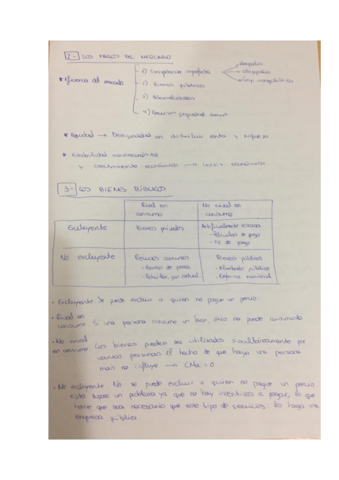 2.- LOS FALLOS DE MERCADO
* Eficiencia del mercado
1) Competencia imperfecta
monopolio
oligopolio
comp. monopolística
2) Bienes públicos
3) Externalidades
4)
* Equidad → Desigualdad en distribución renta y riqueza
* Estabilidad macroeconómica
↳ crecimiento económico → ciclos económicos
3.- LOS BIENES PÚBLICOS
Rival en consumo
No rival en consumo
Excluyente
Bienes privados
Artificialmente escasos
- Películas de pago
- TV de pago
No excluyente
Recursos comunes
- Bancos de peces
Bienes públicos
- Alumbrado público
- Defensa nacional
- Excluyente Se puede excluir a quien no pague un precio.
- Rival en consumo Si una persona consume un bien, otra no puede consumirlo
- No rival en consumo Los bienes pueden ser utilizados simultáneamente por
varias personas. El hecho de que haya una persona
más no influye → CMa = 0
- No excluyente No se puede excluir a quien no pague un precio
Esto supone un problema ya que no hay incentivos a pagar, lo que
hace que sea necesario que este tipo de servicios lo haga una
empresa pública.